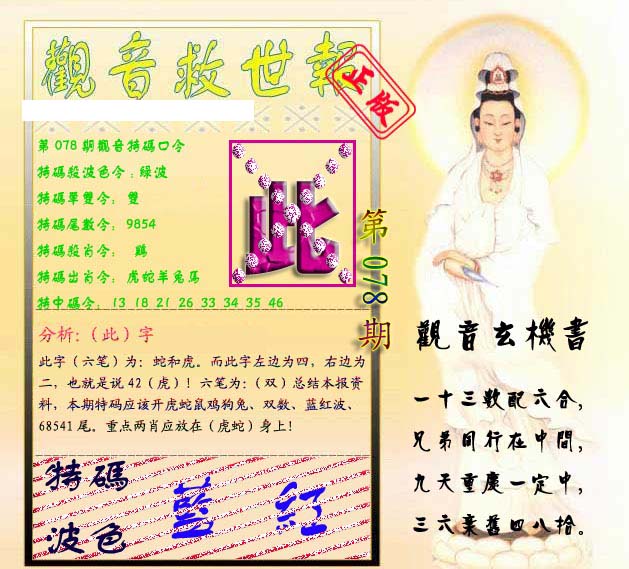 觀音救世報
正版
第078期觀音特碼口令
特碼殺波色令:綠波
特碼單雙令: 雙
特碼尾數令: 9854
特碼殺肖令: 鷄
特碼出肖令: 虎蛇羊兔馬
特中碼令: 13 18 21 26 33 34 35 46
此
第078期
分析:(此)字
此字(六笔)为:蛇和虎。而此字左边为四,右边为
二,也就是说42(虎)!六笔为:(双)总结本报资
料,本期特码应该开虎蛇鼠鸡狗兔、双数、蓝红波、
68541尾。重点两肖应放在(虎蛇)身上!
特碼
波色
藍 紅
觀音玄機書
一十三數配六合,
兄弟同行在中間,
九天重慶一定中,
三六棄舊四八拾。